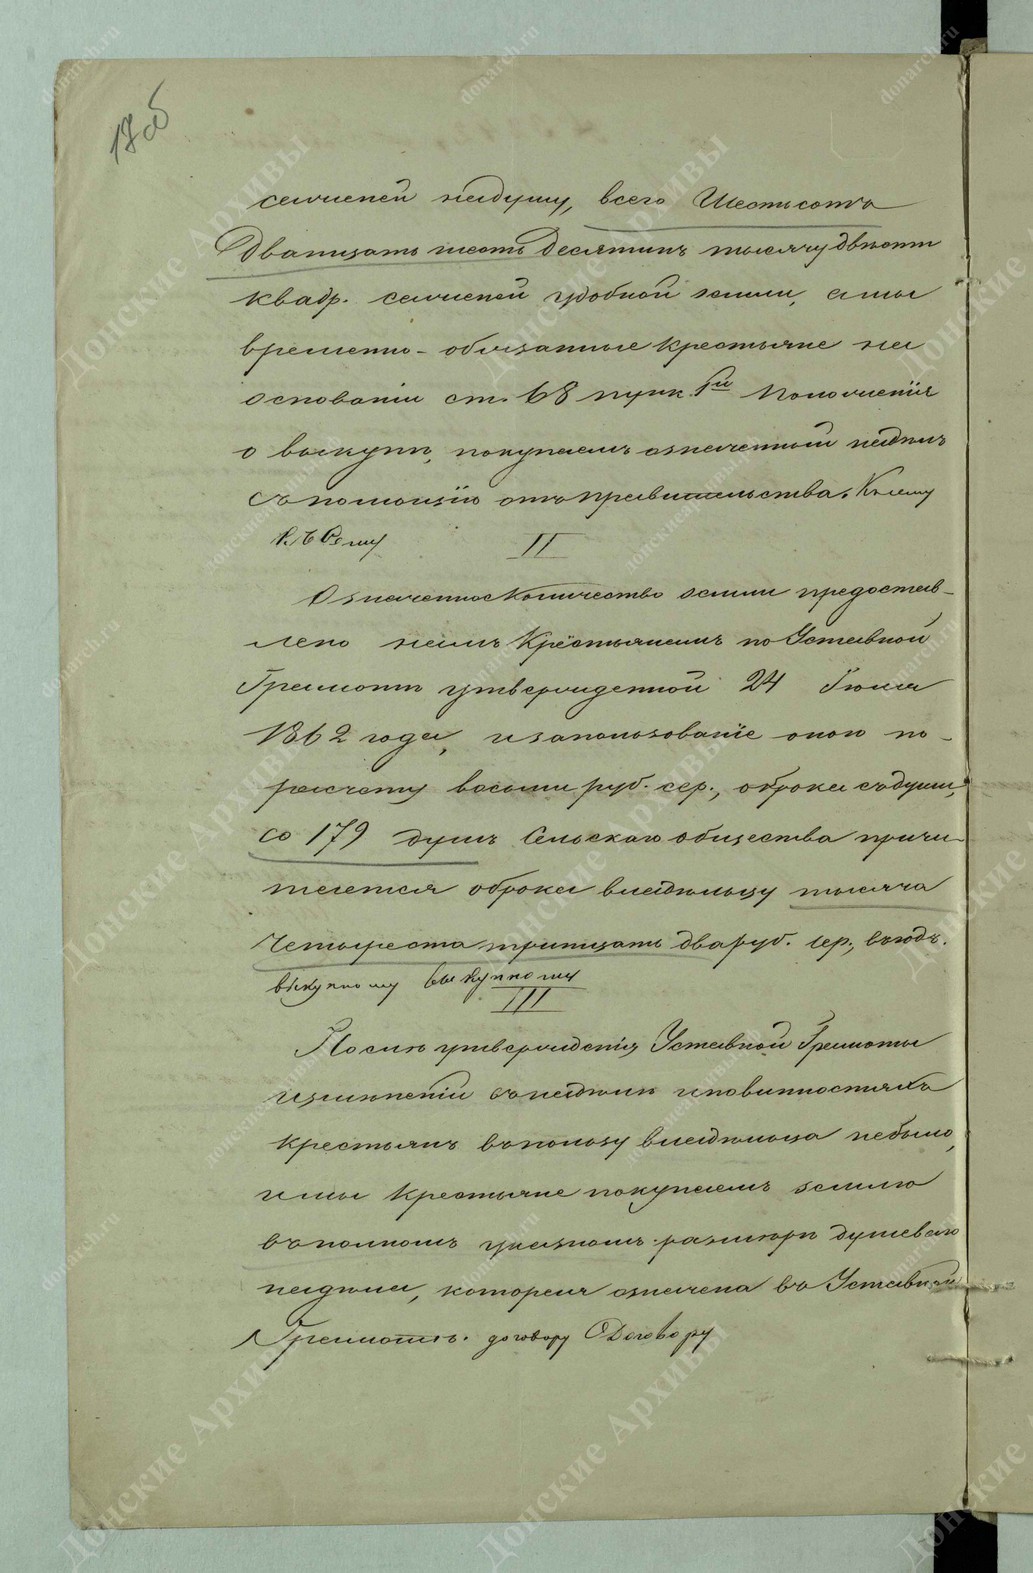 17 об
саженей надушу, всего Шестьсотъ
Двадцать шесть Десятинъ тысячу двѣсти
квадр. саженей удобной земли, а мы
временно-обязанные крестьяне на
основаніи ст. 68 пунк. 1й Положенія
о выкупѣ, покупаемъ означенный надѣлъ
съ помощію отъ правительства. Къ сему
Къ Сему
II
Означенное Количество земли предостав-
лено намъ Крестьянамъ по Уставной
Грамотѣ утвержденной 24 Іюля
1862 года, и за пользованіе оною по-
расчету восьми руб. сер., оброка съ души,
со 179 душъ Сельскаго общества причи-
тается оброка владѣльцу тысяча
Четыреста тритцать два руб. сер., въ годъ.
выкупному выкупному
III
Послѣ утвержденія Уставной Грамоты
измѣненій въ надѣлѣ и повинностяхъ
крестьянъ въ пользу владѣльца небыло,
и мы крестьяне покупаемъ землю
въ полномъ указномъ размѣрѣ душеваго
надѣла, которая означена въ Уставной
Грамотѣ. договору Договору
Донские Архивы
donarch.ru
донскиеархивы.рф